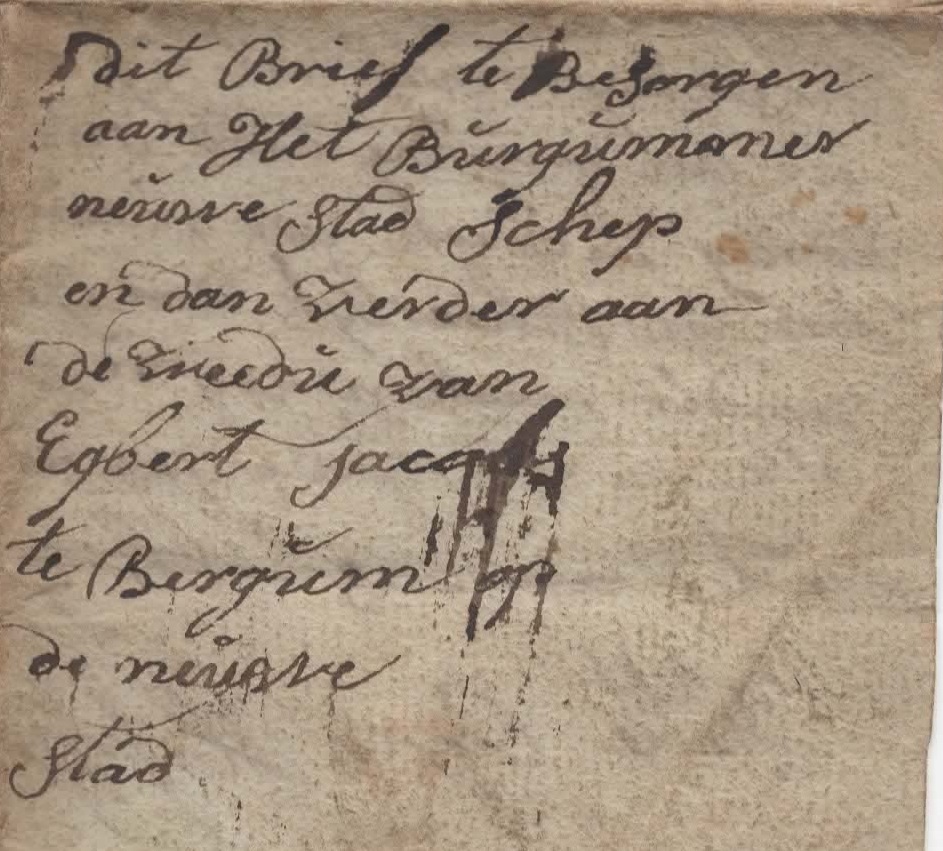 dit Brief te Besorgen
aan Het Burgummer
neuwe Stad Schep
en dan verder aan
de weedu van
Egbert jacobs
te Bergum op
de neuwe
Stad